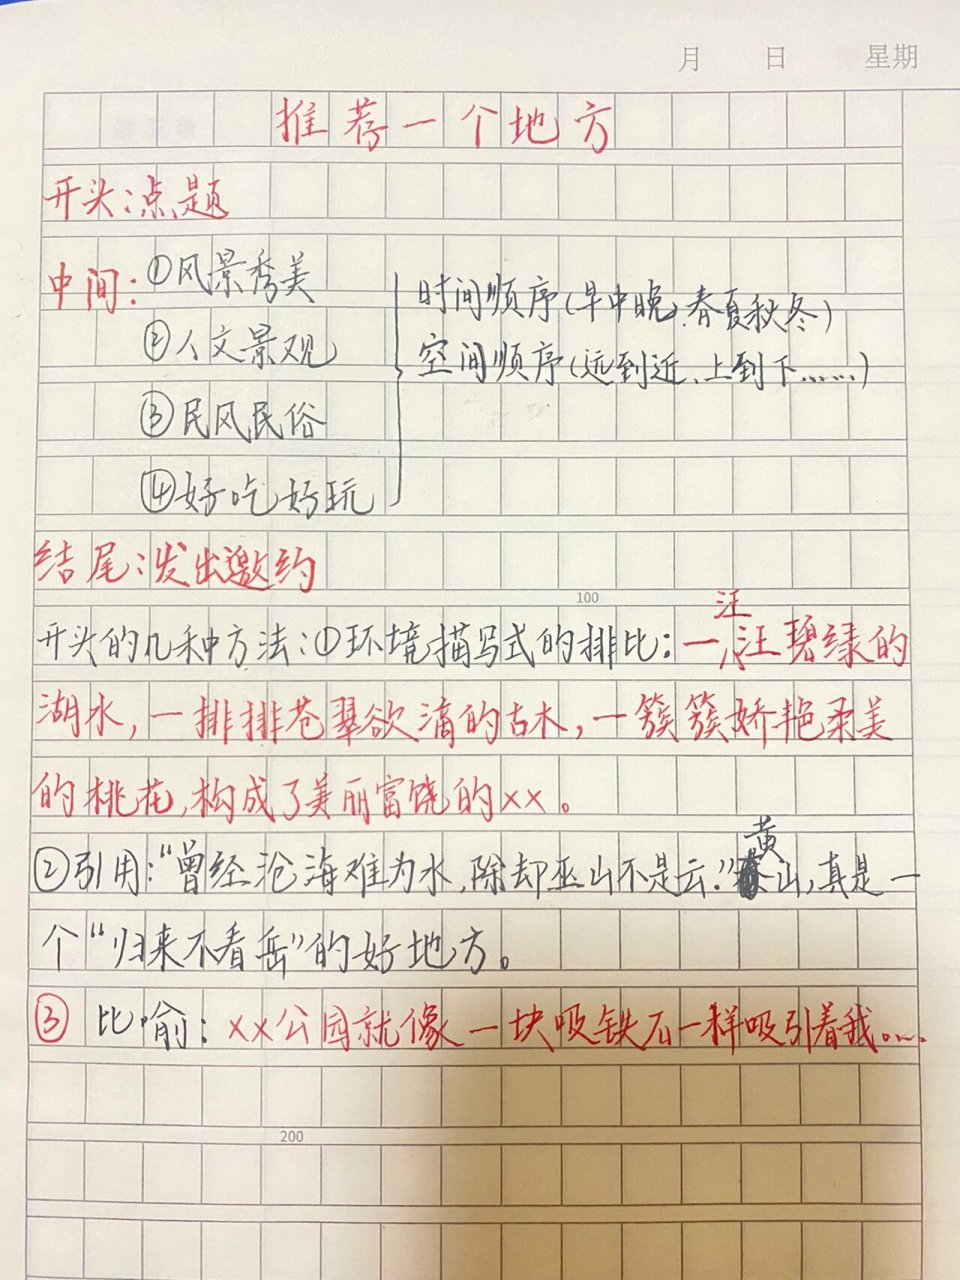 月 日 星期
推荐一个地方
开头:点题
中间:①风景秀美
②人文景观
③民风民俗
④好吃好玩
时间顺序(早中晚、春夏秋冬)
空间顺序(远到近、上到下……)
结尾:发出邀约
100
开头的几种方法:①环境描写式的排比:一汪汪碧绿的
湖水,一排排苍翠欲滴的古木,一簇簇娇艳柔美
的桃花,构成了美丽富饶的xx。
②引用:“曾经沧海难为水,除却巫山不是云。”黄山,真是一
个“归来不看岳”的好地方。
③比喻:xx公园就像一块吸铁石一样吸引着我……
200